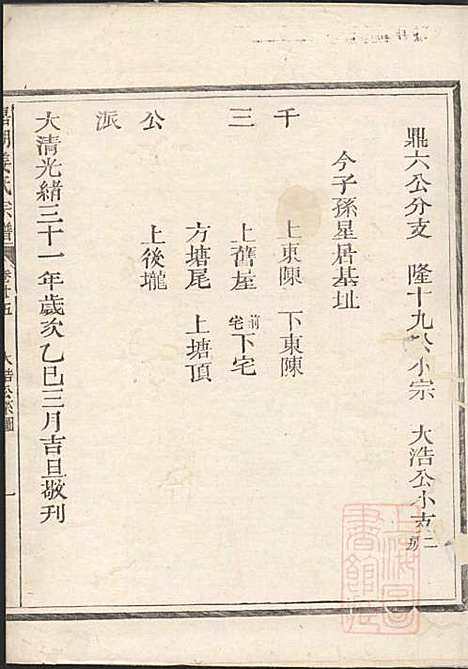 鼎六公分支 隆十九公小宗 大浩公小支二房
今子孫星居基址
千 上東陳 下東陳
三 上舊屋 前宅 下宅
方塘尾 上塘頂
公 上後壠
派
大清光緒三十一年歲次乙巳三月吉旦敬刊
姜氏宗譜 卷廿五 大浩公系圖 一